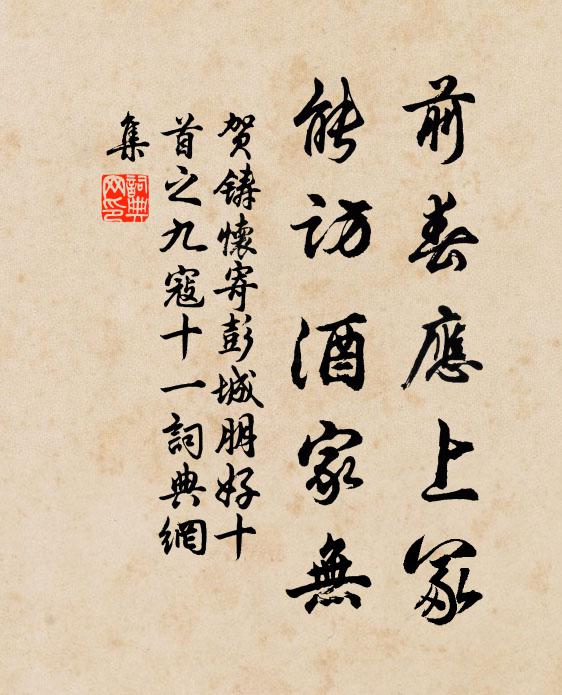 前春應上冢
能訪酒家無
賀鑄懷寄彭城朋好十
首之九寇十一詞典網
集
詞典
网印